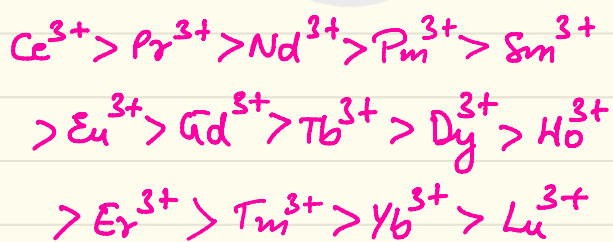 Ce³⁺ > Pr³⁺ > Nd³⁺ > Pm³⁺ > Sm³⁺
> Eu³⁺ > Gd³⁺ > Tb³⁺ > Dy³⁺ > Ho³⁺
> Er³⁺ > Tm³⁺ > Yb³⁺ > Lu³⁺